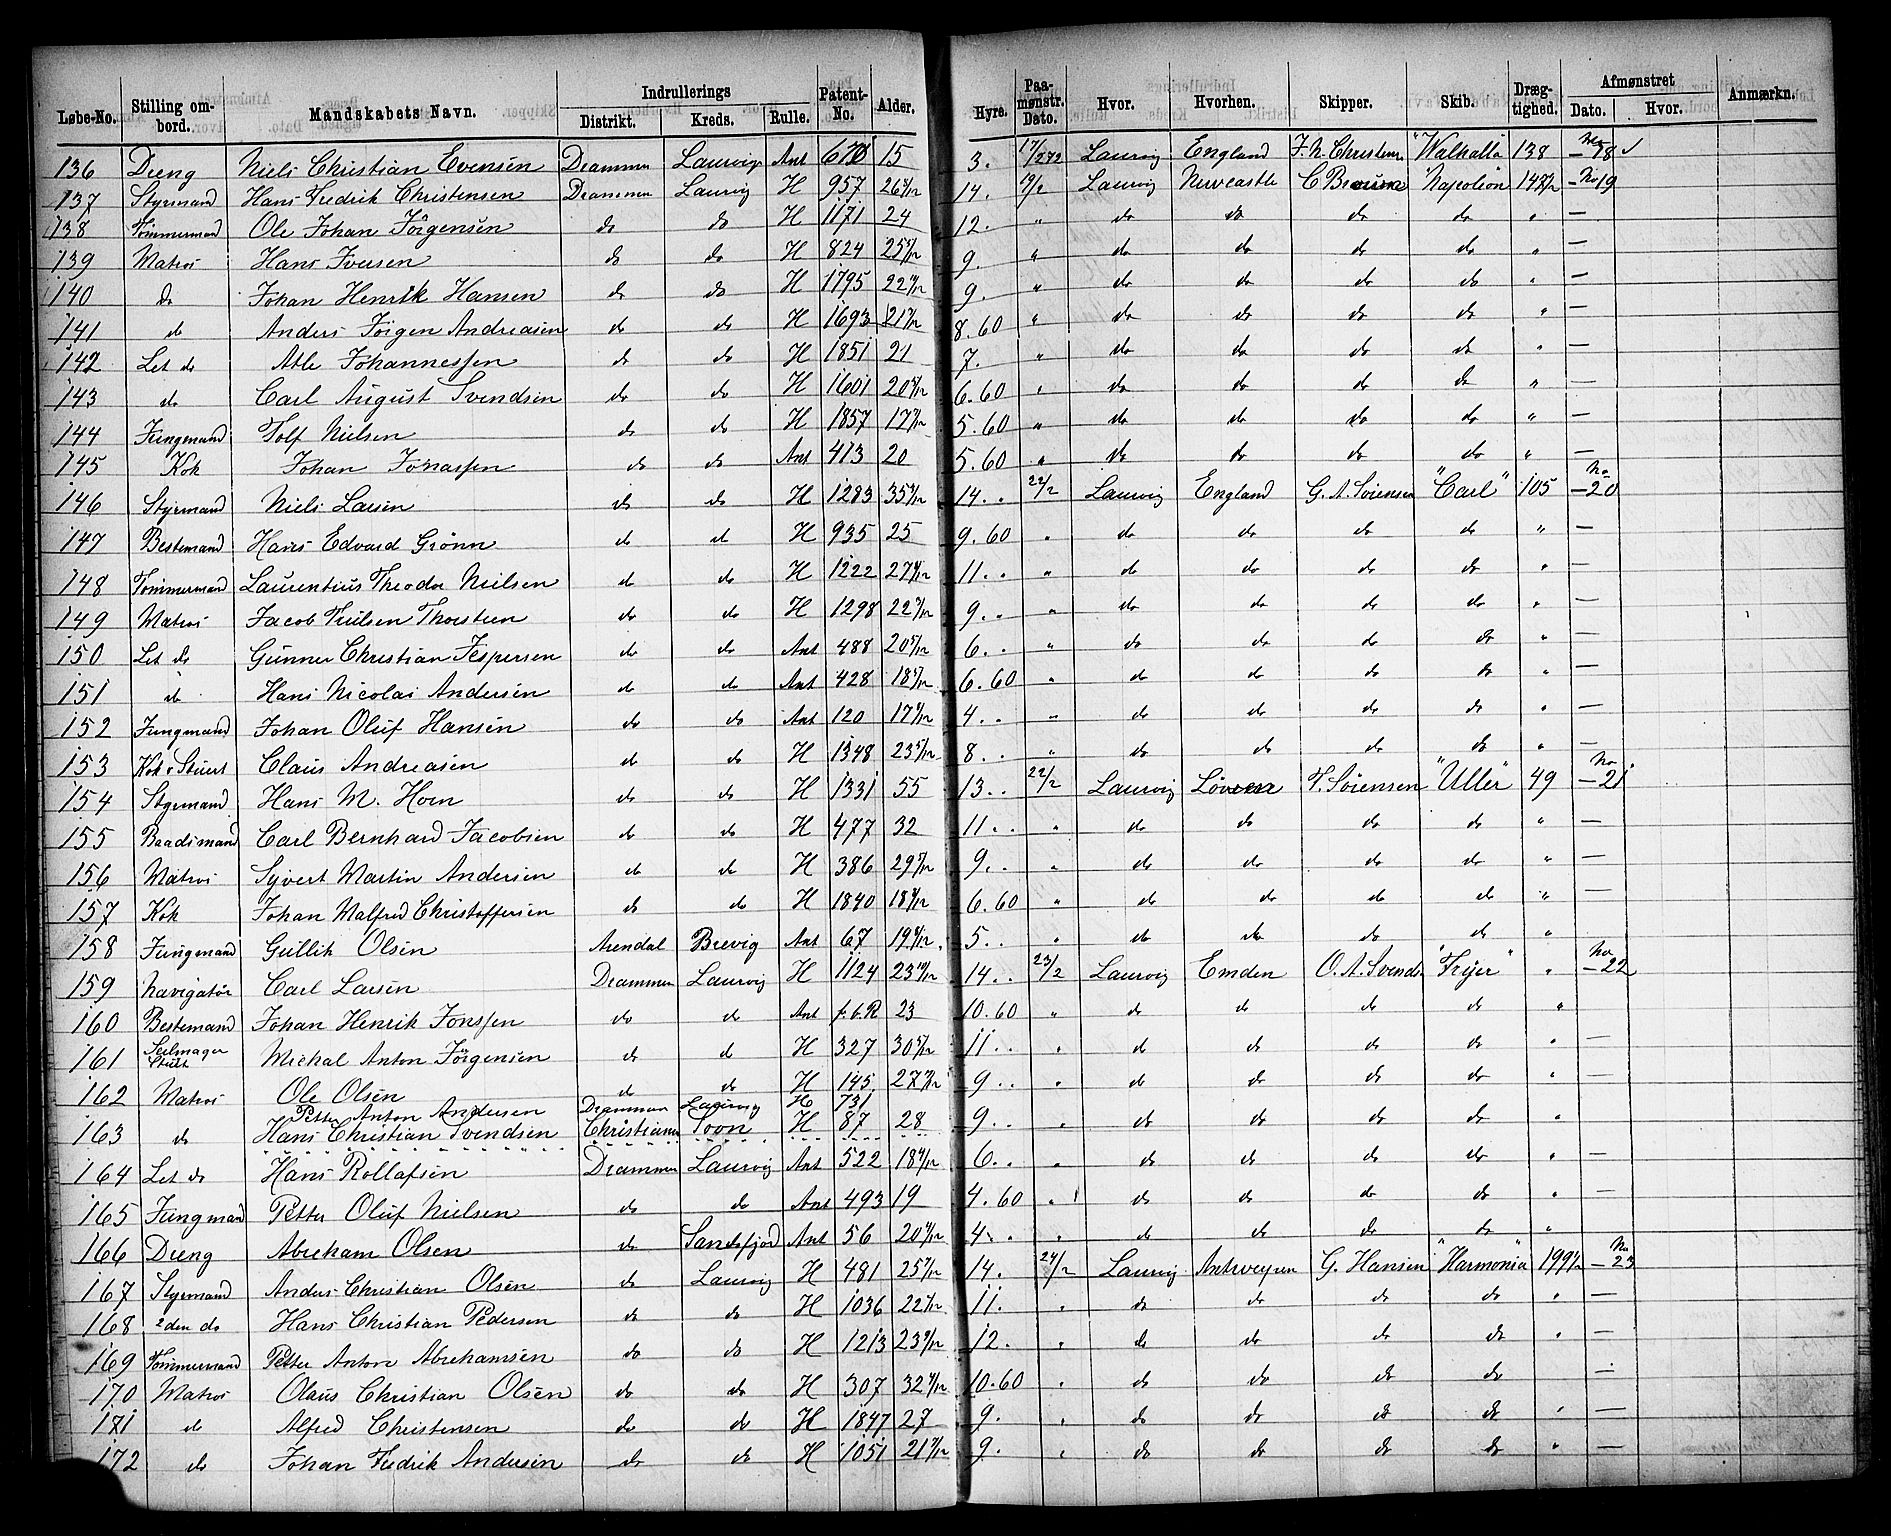 Løbe-No. Stilling ombord. Mandskabets Navn. Indrullerings Distrikt. Kreds. Rulle. Patent-No. Alder. Hyre. Paamønstr. Dato. Hvor. Hvorhen. Skipper. Skib. Drægtighed. Afmønstret Dato. Hvor. Anmærkn.
136 Dreng Niels Christian Evensen Drammen Laurvig Ant 15 3. 17/2 72 Laurvig England F. N. Christense "Walhalla 138 No 18
137 Styrmand Hans Fredrik Christensen Drammen Laurvig H 957 26 14. 19/2 Laurvig Newcastle C Bruun "Napoleon" 148 1/2 No 19
138 Tømmermand Ole Johan Jörgensen do do H 1171 24 12. " do do do do " —
139 Matros Hans Iversen do do H 824 25 9. " do do do do " —
140 do Johan Henrik Hansen do do H 1795 22 9. " do do do do " —
141 do Anders Jörgen Andreasen do do H 1693 21 8.60 " do do do do " —
142 Let do Atle Johannessen do do H 1851 21 7. " do do do do " —
143 do Carl August Svendsen do do H 1601 20 6.60 " do do do do " —
144 Jungmand Rolf Nielsen do do H 1857 17 5.60 " do do do do " —
145 Kok Johan Jonassen do do Ant 413 20 5.60 " do do do do " —
146 Styrmand Niels Larsen do do H 1283 35 14.. 22/2 Laurvig England G. A. Sörensen "Carl" 105 No 20
147 Bestemand Hans Edvard Grönn do do H 935 25 9.60 " do do do do " —
148 Tømmermand Laurentius Theodor Nielsen do do H 1222 27 11.. " do do do do " —
149 Matros Jacob Nielsen Thorsteen do do H 1298 22 9.. " do do do do " —
150 Let do Gunner Christian Jespersen do do Ant 488 20 6.. " do do do do " —
151 do Hans Nicolai Andersen do do Ant 428 18 6.60 " do do do do " —
152 Jungmand Johan Oluf Hansen do do Ant 120 17 4.. " do do do do " —
153 Kok & Stuert Claus Andreasen do do H 1348 23 8.. " do do do do " —
154 Styrmand Hans M. Horn do do H 1331 55 13.. 22/2 Laurvig T. Sörensen "Uller" 49 No 21
155 Baadsmand Carl Bernhard Jacobsen do do H 477 32 11.. " do do do do " —
156 Matros Syvert Martin Andersen do do H 386 29 9.. " do do do do " —
157 Kok Johan Walfred Christoffersen do do H 1840 18 6.60 " do do do do " —
158 Jungmand Gullik Olsen Arendal Brevig Ant 67 19 5.. " do do do do "
159 Navigatör Carl Larsen Drammen Laurvig H 1124 23 14.. 23/2 Laurvig Emden O. A. Svends "Freyer" " No 22
160 Bestemand Johan Henrik Jonssen do do Ant f. 6. R 23 10.60 " do do do do "
161 Seilmager Stuert Michal Anton Jörgensen do do H 327 30 11.. " do do do do " —
162 Matros Ole Olsen do do H 145 27 9.. " do do do do " —
Petter Anton Andersen Drammen Laurvig H 731
163 do Hans Christian Svendsen Christiania Soon H 87 28 9.. " do do do do " —
164 Let do Hans Rollafsen Drammen Laurvig Ant 522 18 6.. " do do do do " —
165 Jungmand Petter Oluf Nielsen do do Ant 493 19 4.60 " do do do do " —
166 Dreng Abraham Olsen do Sandefjord Ant 56 20 4.. " do do do do "
167 Styrmand Anders Christian Olsen do Laurvig H 481 25 14. 24/2 Laurvig Antwerpen G. Hansen "Harmonia" 199 1/2 No 23
168 2den do Hans Christian Pedersen do do H 1036 22 11. " do do do do " —
169 Tømmermand Petter Anton Abrahamsen do do H 1213 23 12. " do do do do " —
170 Matros Olaus Christian Olsen do do H 307 32 10.60 " do do do do —
171 do Alfred Christensen do do H 1847 27 9. " do do do do " —
172 do Johan Fredrik Andersen do do H 1051 21 9. " do do do do " —